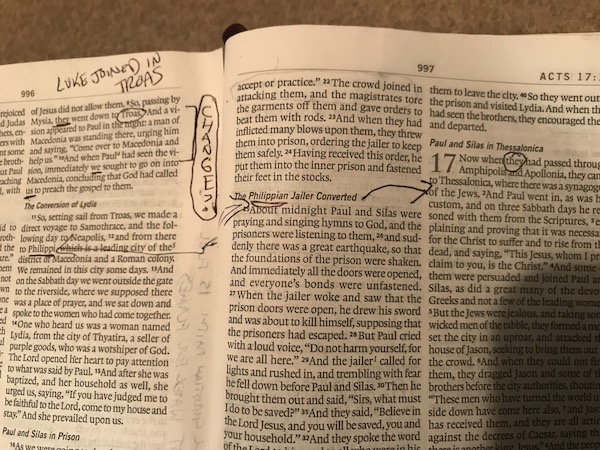 996
LUKE JOINED IN
TROAS
of Jesus did not allow them. ⁸So, passing by
Mysia, they went down to Troas. ⁹And a vi-
sion appeared to Paul in the night: a man of
Macedonia was standing there, urging him
and saying, "Come over to Macedonia and
help us." ¹⁰And when Paul had seen the vi-
sion, immediately we sought to go on into
Macedonia, concluding that God had called
us to preach the gospel to them.
The Conversion of Lydia
¹¹So, setting sail from Troas, we made a
direct voyage to Samothrace, and the fol-
lowing day to Neapolis, ¹²and from there
to Philippi, which is a leading city of the
district of Macedonia and a Roman colony.
We remained in this city some days. ¹³And
on the Sabbath day we went outside the gate
to the riverside, where we supposed there
was a place of prayer, and we sat down and
spoke to the women who had come together.
¹⁴One who heard us was a woman named
Lydia, from the city of Thyatira, a seller of
purple goods, who was a worshiper of God.
The Lord opened her heart to pay attention
to what was said by Paul. ¹⁵And after she was
baptized, and her household as well, she
urged us, saying, "If you have judged me to
be faithful to the Lord, come to my house and
stay." And she prevailed upon us.
Paul and Silas in Prison
CHANGES
997
ACTS 17:
accept or practice." ²²The crowd joined in
attacking them, and the magistrates tore
the garments off them and gave orders to
beat them with rods. ²³And when they had
inflicted many blows upon them, they threw
them into prison, ordering the jailer to keep
them safely. ²⁴Having received this order, he
put them into the inner prison and fastened
their feet in the stocks.
The Philippian Jailer Converted
²⁵About midnight Paul and Silas were
praying and singing hymns to God, and the
prisoners were listening to them, ²⁶and sud-
denly there was a great earthquake, so that
the foundations of the prison were shaken.
And immediately all the doors were opened,
and everyone's bonds were unfastened.
²⁷When the jailer woke and saw that the
prison doors were open, he drew his sword
and was about to kill himself, supposing that
the prisoners had escaped. ²⁸But Paul cried
with a loud voice, "Do not harm yourself, for
we are all here." ²⁹And the jailer called for
lights and rushed in, and trembling with fear
he fell down before Paul and Silas. ³⁰Then he
brought them out and said, "Sirs, what must
I do to be saved?" ³¹And they said, "Believe in
the Lord Jesus, and you will be saved, you and
your household." ³²And they spoke the word
them to leave the city. ⁴⁰So they went out
the prison and visited Lydia. And when th
had seen the brothers, they encouraged the
and departed.
Paul and Silas in Thessalonica
17 Now when they had passed throug
Amphipolis and Apollonia, they can
to Thessalonica, where there was a synagogu
of the Jews. ²And Paul went in, as was h
custom, and on three Sabbath days he re
soned with them from the Scriptures, ³e
plaining and proving that it was necessa
for the Christ to suffer and to rise from th
dead, and saying, "This Jesus, whom I pr
claim to you, is the Christ." ⁴And some
them were persuaded and joined Paul a
Silas, as did a great many of the devo
Greeks and not a few of the leading wome
⁵But the Jews were jealous, and taking som
wicked men of the rabble, they formed a mo
set the city in an uproar, and attacked th
house of Jason, seeking to bring them out
the crowd. ⁶And when they could not fin
them, they dragged Jason and some of
brothers before the city authorities, shoutin
"These men who have turned the world u
side down have come here also, ⁷and Jaso
has received them, and they are all acti
against the decrees of Caesar, saying th